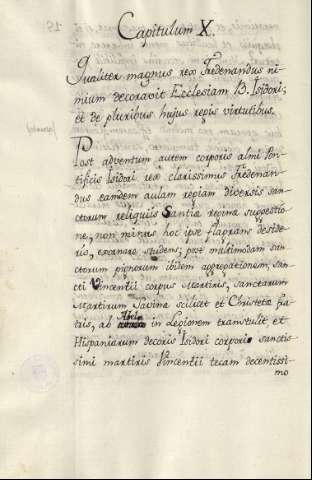 Capitulum X.
Qualiter magnus rex Fredenandus ni-
mium decoravit Ecclesiam B. Isidori;
et de pluribus hujus regis virtutibus.
Post adventum autem corporis almi Pon-
tificis Isidori rex clarissimus Fredenan-
dus eamdem aulam regiam diversis sanc-
torum reliquiis Santia regina suggestio-
ne, non minus hoc ipse flagrans deside-
riis, exornare studens; post multimodam sanc-
torum pignorum ibidem aggregationem, sanc-
ti Vincentii corpus Martiris, sanctarum
Martirum Savina scilicet et Christeta fra-
tris, ab Abila in Legionem transtulit, et
Hispaniarum decoris Isidori corpori sanctis-
simi martiris Vincentii tecam decentissi-
mo